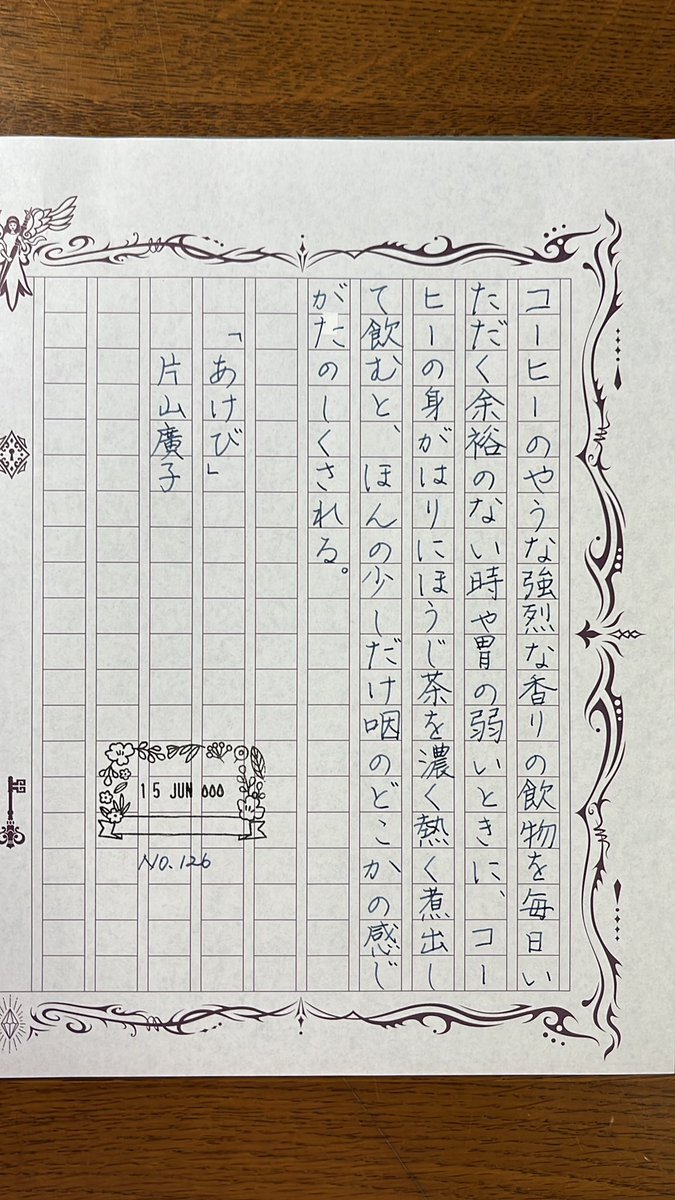 コーヒーのやうな強烈な香りの飲物を毎日い
ただく余裕のない時や胃の弱いときに、コー
ヒーの身がはりにほうじ茶を濃く熱く煮出し
て飲むと、ほんの少しだけ咽のどこかの感じ
がたのしくされる。
「あけび」
片山廣子
15 JUN 000
NO.126